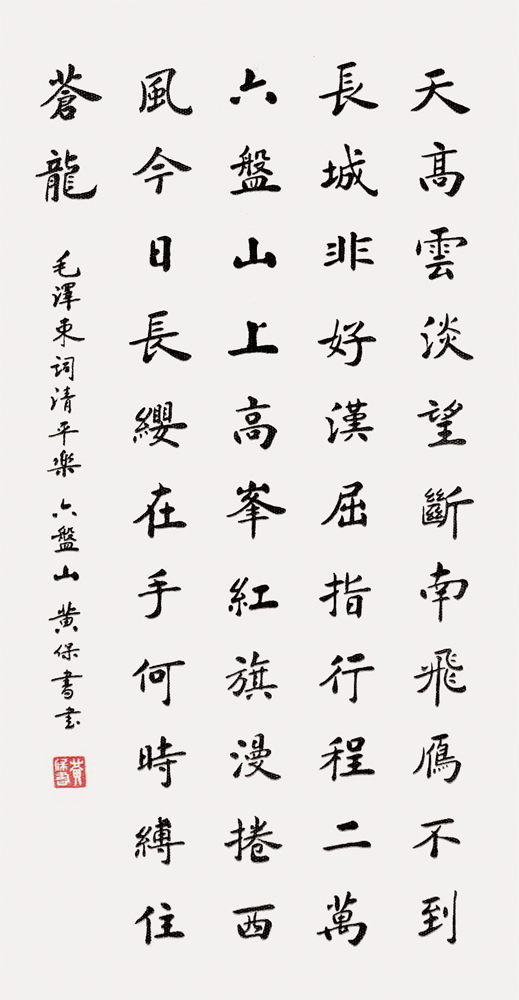 天髙雲淡望斷南飛鴈不到
長城非好漢屈指行程二萬
六盤山上高峯紅旗漫捲西
風今日長纓在手何時縛住
蒼龍
毛澤東詞清平樂 六盤山 黄保書書
黄保書